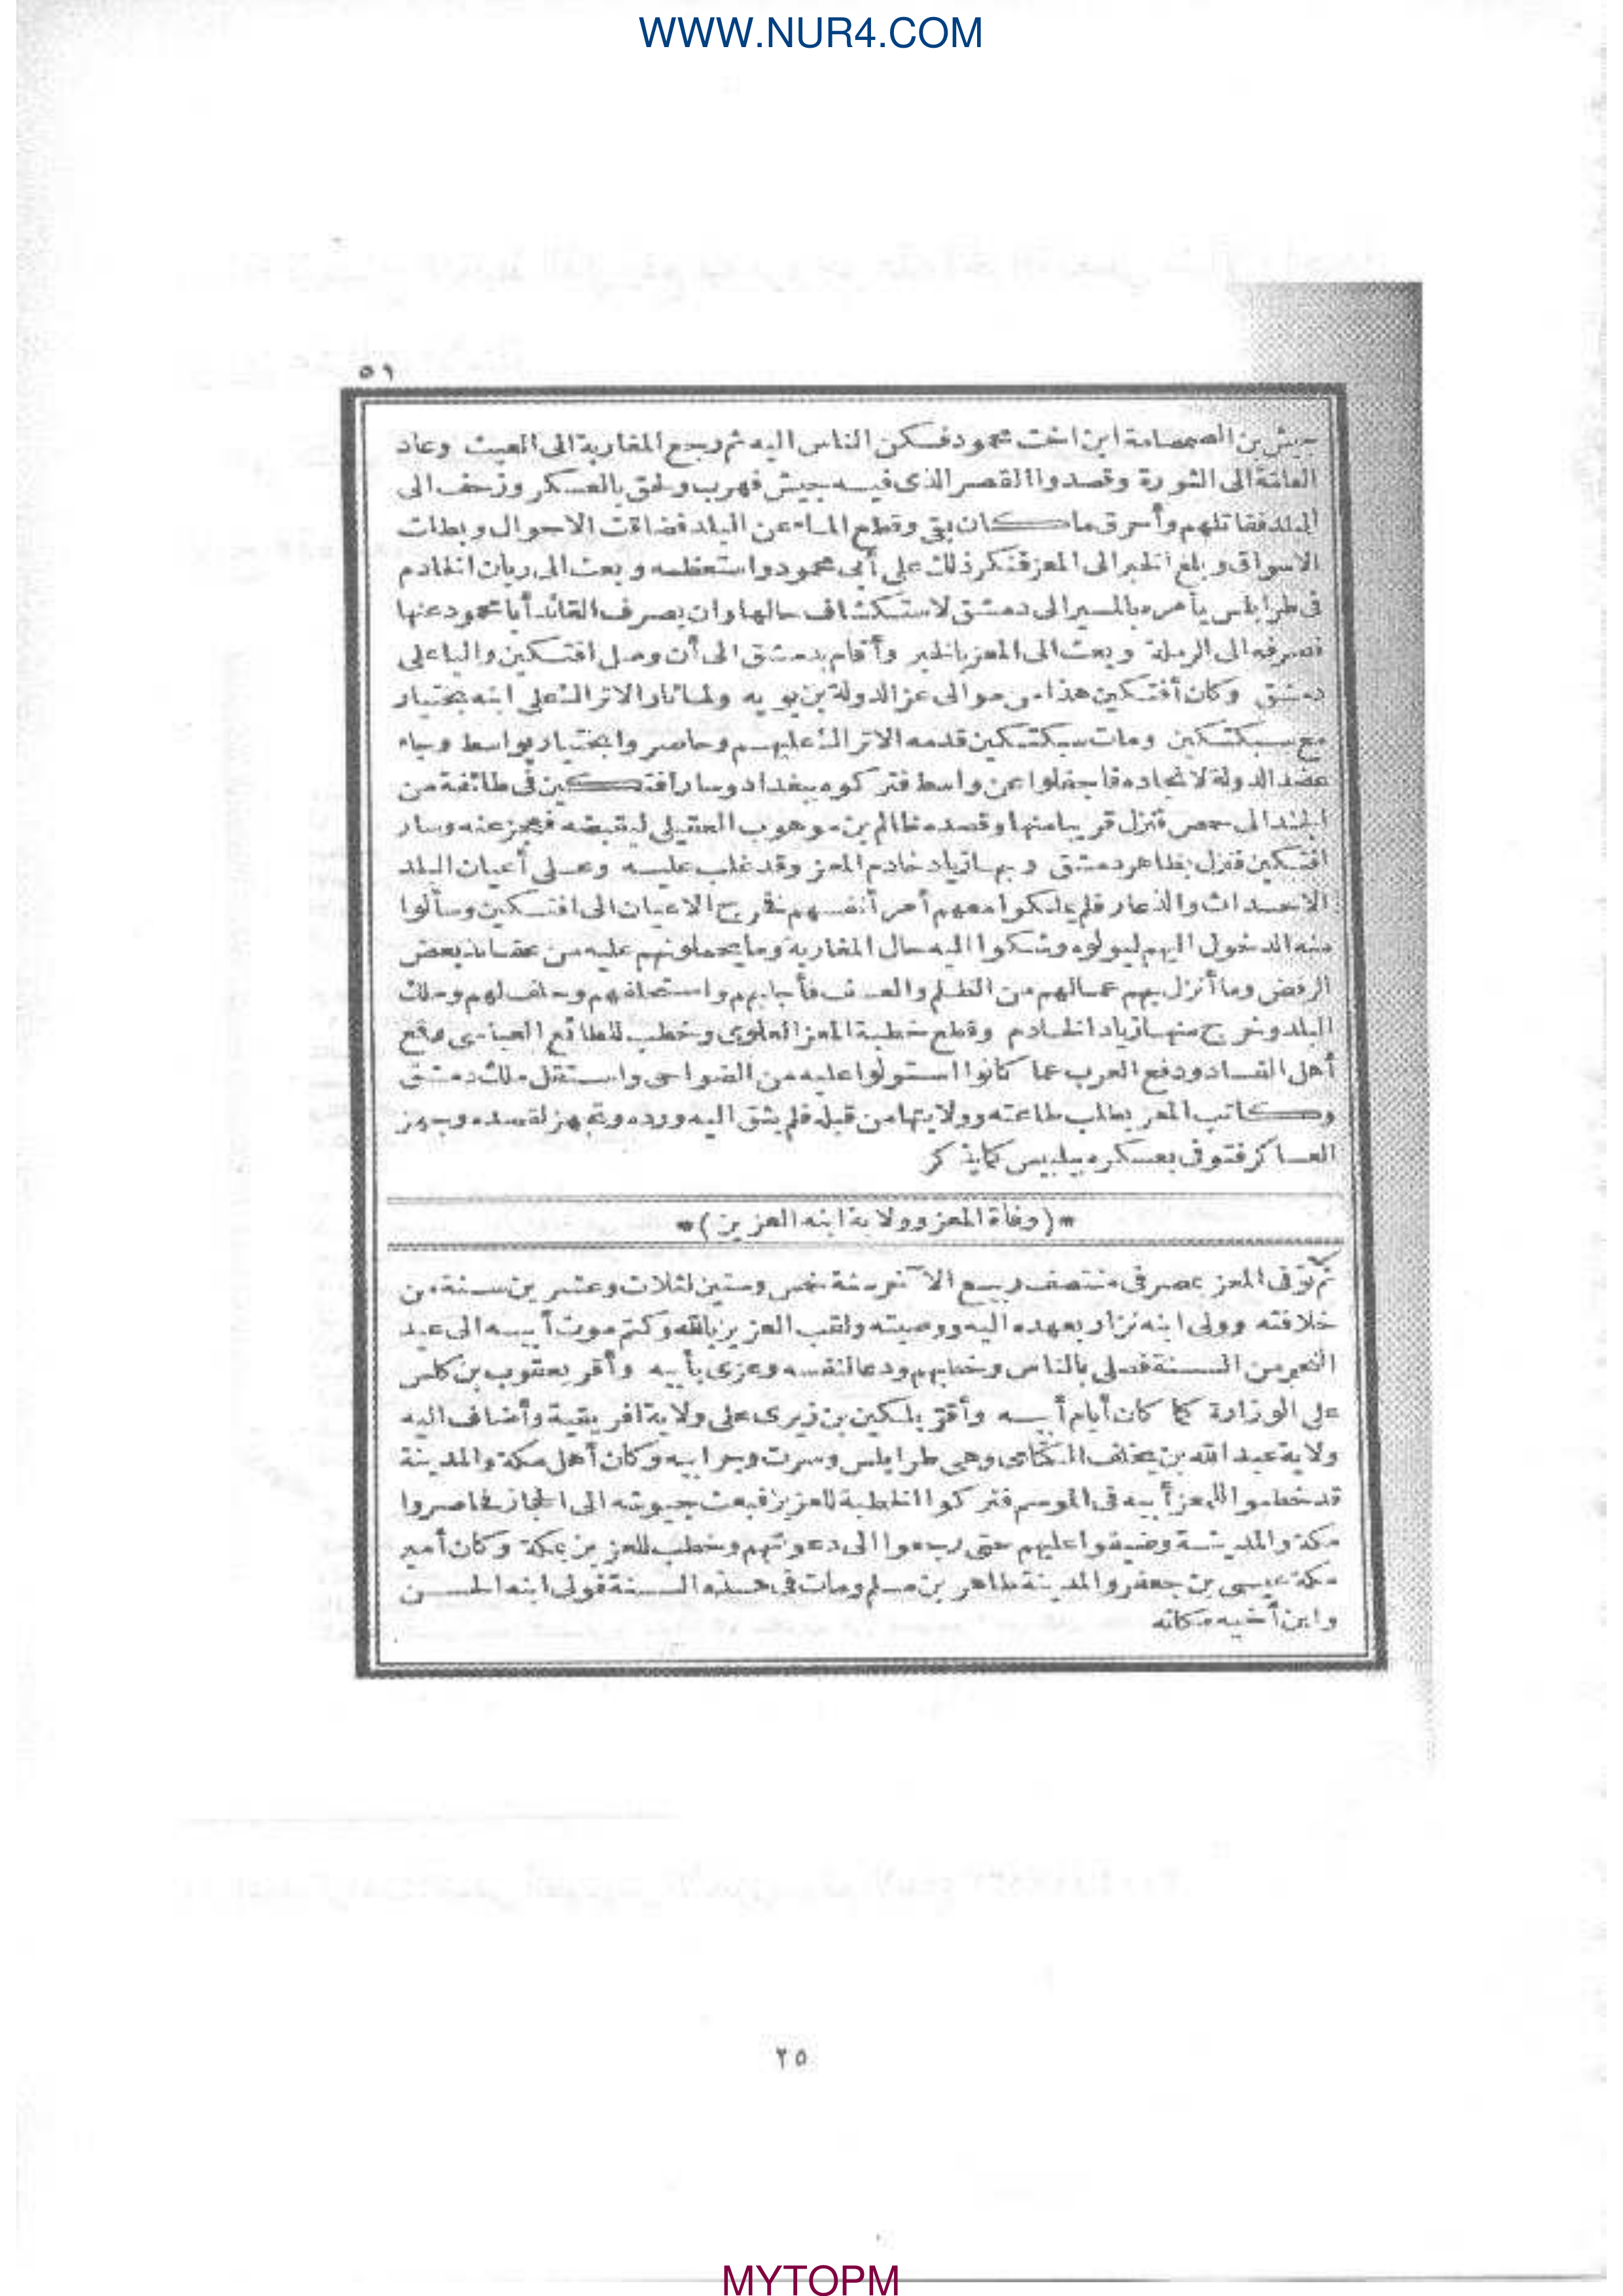 WWW.NUR4.COM
٥١
جيش بن الصمصامة ابن اخت محمود فسكن الناس اليه ثم رجع المغاربة الى العيث وعاد
العامة الى الثورة وقصدوا القصر الذى فيه جيش فهرب ولحق بالعسكر وزحف الى
البلد فقاتلهم وأحرق ما كان بقى وقطع الماء عن البلد فضاقت الاحوال وبطلت
الاسواق وبلغ الخبر الى المعز فنكر ذلك على أبى محمود واستعظمه وبعث الى ريان الخادم
فى طرابلس يأمره بالمسير الى دمشق لاستكشاف حالها وان يصرف القائد أبا محمود عنها
فصرفه الى الرملة وبعث الى المعز بالخبر وأقام بدمشق الى أن وصل افتكين واليا على
دمشق وكان أفتكين هذا من موالى عز الدولة بن بويه ولما ثار الاتراك على ابنه بختيار
مع سبكتكين ومات سبكتكين قدمه الاتراك عليهم وحاصروا بختيار بواسط وجاء
عضد الدولة لانجاده فاجفلوا عن واسط فتركوه ببغداد وسار افتكين فى طائفة من
الجند الى حمص فنزل قريبا منها وقصده ظالم بن موهوب العقيلى ليقبضه فعجز عنه وسار
افتكين فنزل بظاهر دمشق وبها زياد خادم المعز وقد غلب عليه وعلى أعيان البلد
الاحداث والذعار فلم يملكوا معهم أمر أنفسهم فخرج الاعيان الى افتكين وسألوا
منه الدخول اليهم ليولوه وشكوا اليه حال المغاربة وما يحملونهم عليه من عقائد بعض
الرفض وما أنزل بهم عمالهم من الظلم والعسف فأجابهم واستحلفهم وحلف لهم وملك
البلد وخرج منها زياد الخادم وقطع خطبة المعز العلوى وخطب للطائع العباسى وقع
أهل الفساد ودفع العرب عما كانوا استولوا عليه من الضواحى واستقل ملك دمشق
وكاتب المعز بطلب طاعته وولايتها من قبله فلم يثق اليه ورده وتجهز لقصده وجهز
العساكر فتوفى بعسكره ببلبيس كما يذكر
*(وفاة المعز وولاية ابنه العزيز)*
ثم توفى المعز بمصر فى منتصف ربيع الآخر سنة خمس وستين لثلاث وعشرين سنة من
خلافته وولى ابنه نزار بعهده اليه ووصيته ولقب العزيز بالله وكتم موت أبيه الى عيد
النحر من السنة فصلى بالناس وخطبهم ودعا لنفسه وعزى بأبيه وأقر يعقوب بن كلس
على الوزارة كما كان أيام أبيه وأقر بلكين بن زيرى على ولاية افريقية وأضاف اليه
ولاية عبد الله بن يخلف الكتامى وهى طرابلس وسرت وجرابيه وكان أهل مكة والمدينة
قد خطبوا للمعز أبيه فى الموسم فتركوا الخطبة للعزيز فبعث جيوشه الى الحجاز فحاصروا
مكة والمدينة وضيقوا عليهم حتى رجعوا الى دعوتهم وخطب للعزيز بمكة وكان أمير
مكة عيسى بن جعفر والمدينة طاهر بن مسلم ومات فى هذه السنة فولى ابنه الحسن
وابن أخيه مكانه
٢٥
MYTOPM